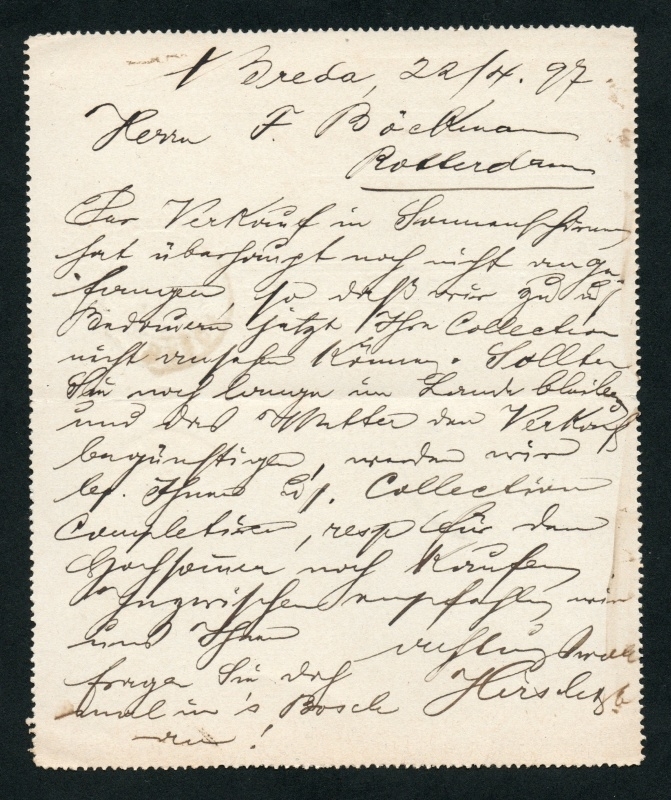 Breda, 22/4. 97.
Herrn F. Böckmann
Rotterdam
Der Verkauf in Sonnenschirmen
hat überhaupt noch nicht ange
fangen, so daß wir zu u/
Bedauern jetzt Ihre Collection
nicht ansehen können. Sollten
Sie noch lange im Lande bleiben
und das Wetter den Verkauf
begünstigen, werden wir
bei Ihnen Collection
completiren, resp für den
Hochsommer noch kaufen
Inzwischen empfehlen wir
uns Ihnen achtungsvoll
fragen Sie doch Hirsch
mal in 's Bosch
an!